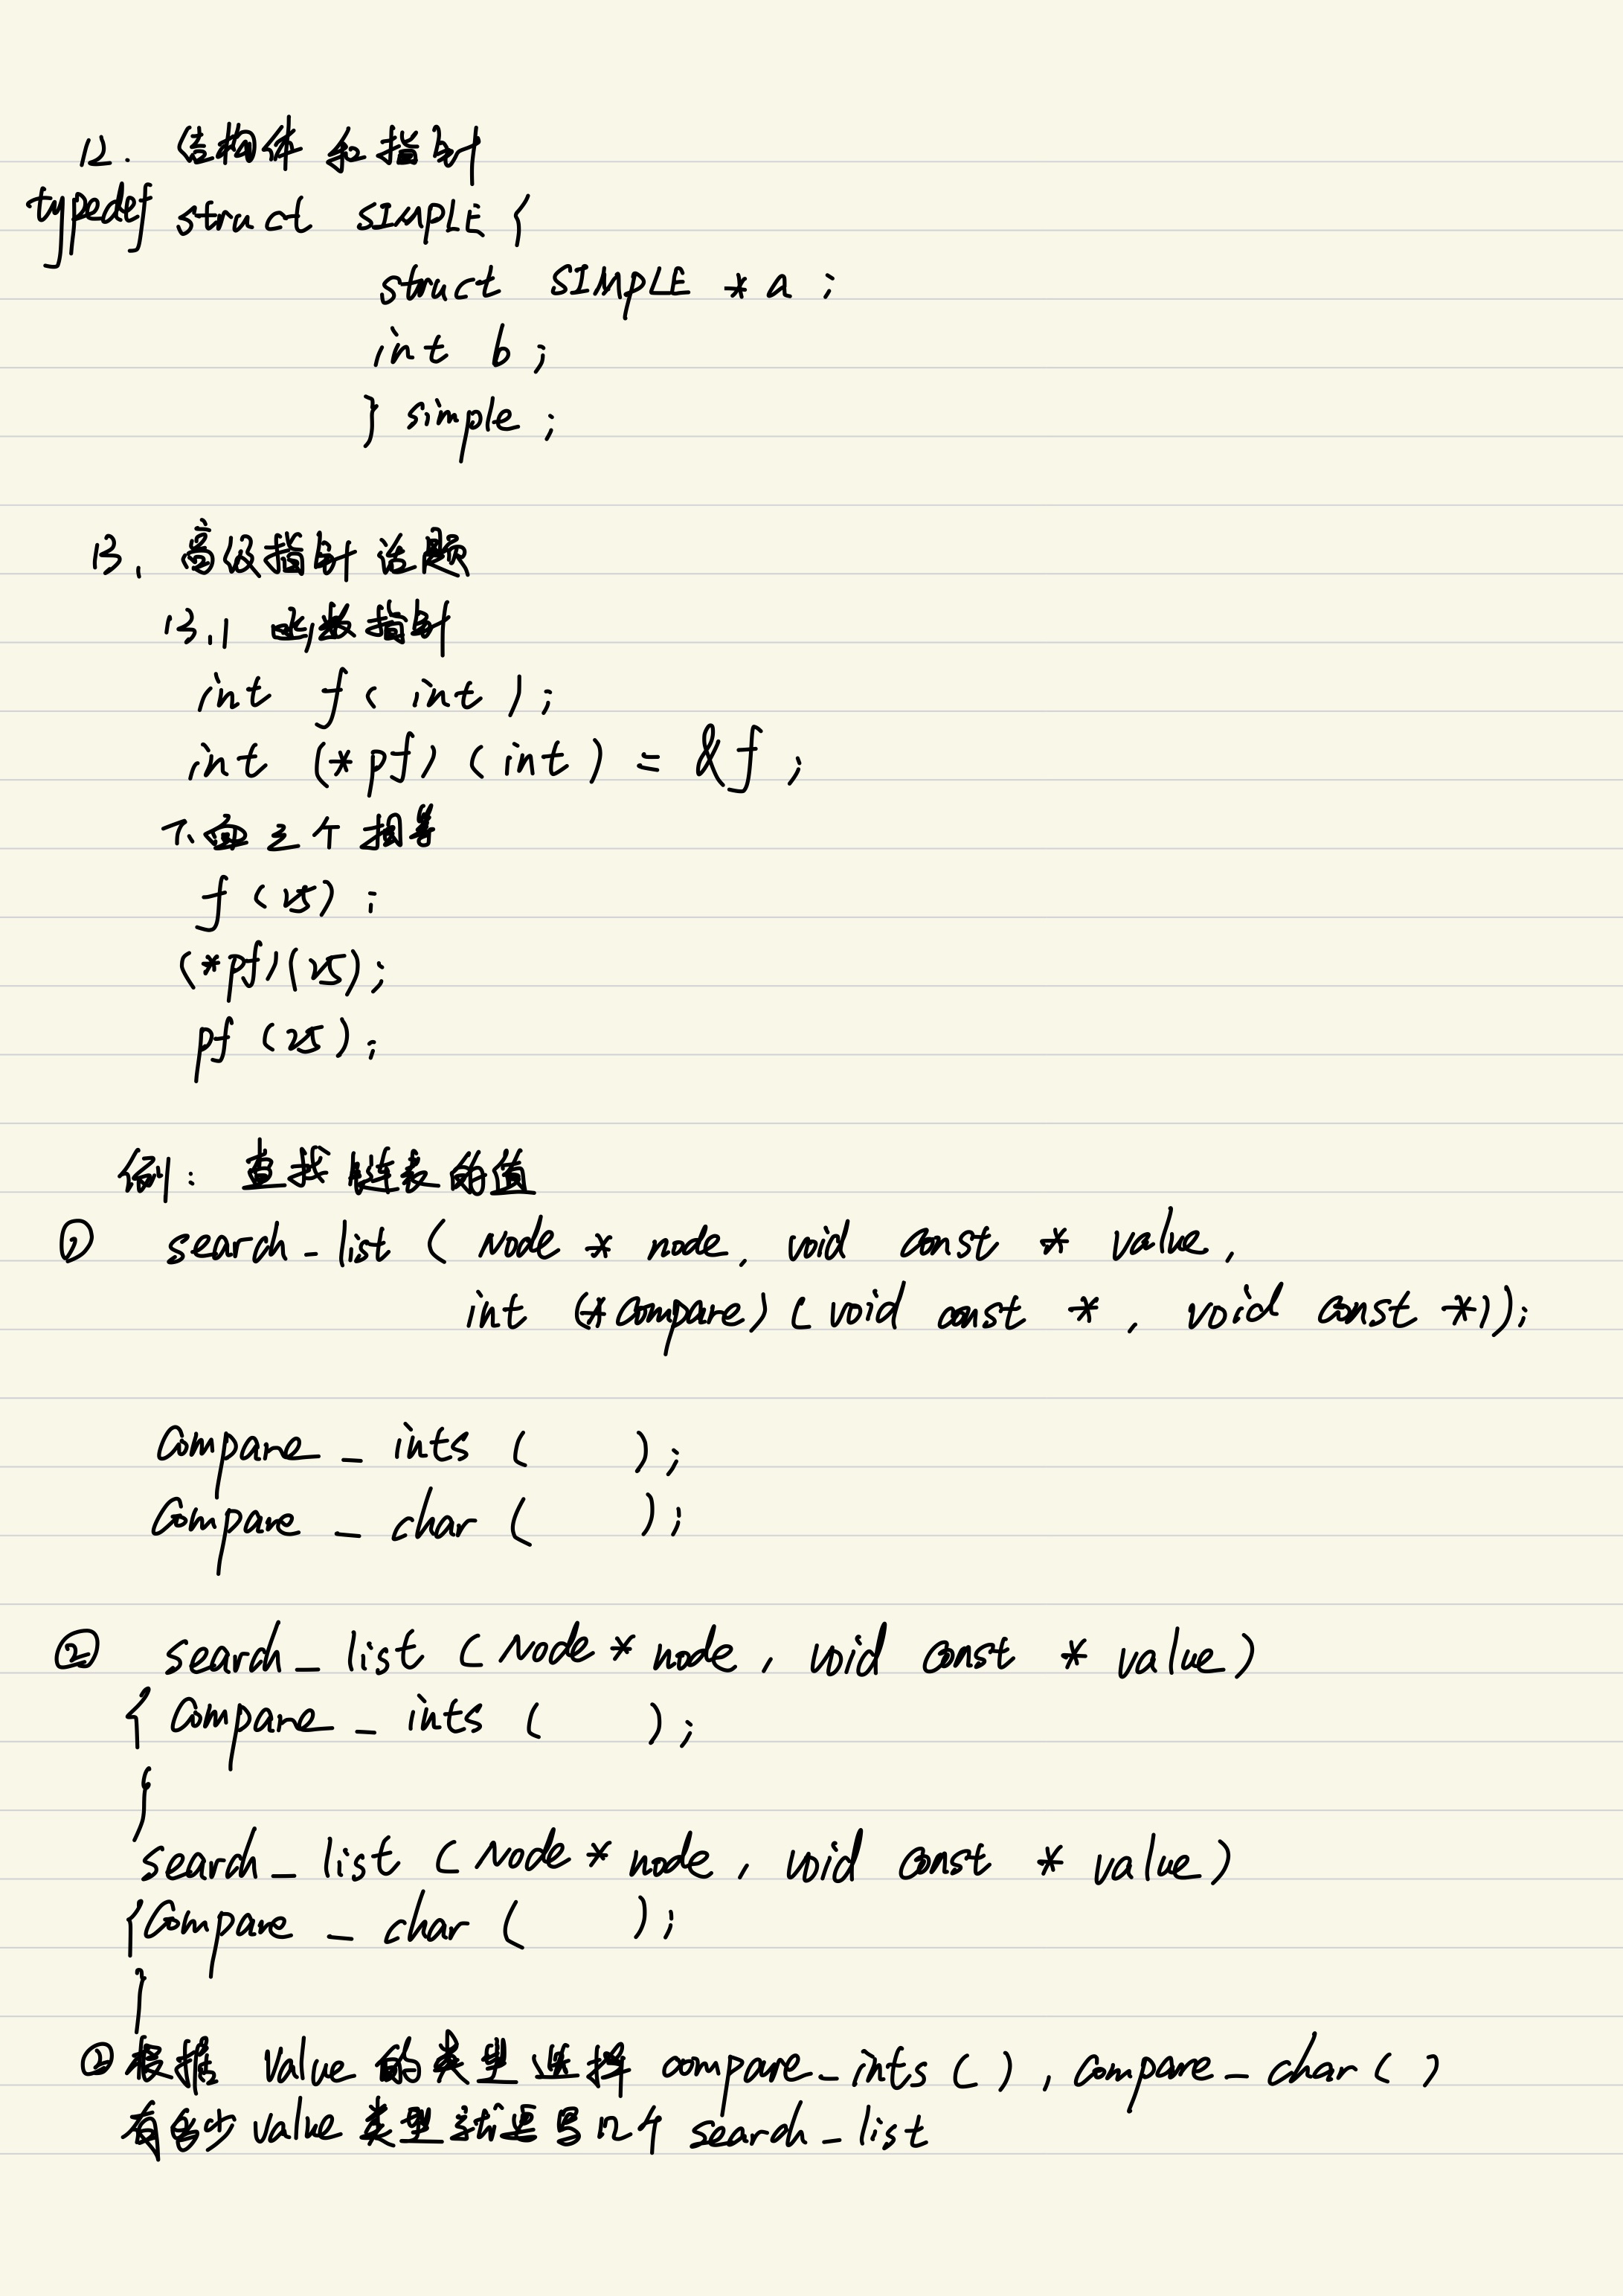 12. 结构体和指针
typedef struct SIMPLE {
struct SIMPLE * a ;
int b ;
} simple ;
13. 高级指针话题
13.1 函数指针
int f( int );
int (*pf) (int) = &f ;
下面三个相等
f (25) ;
(*pf)(25);
pf (25) ;
例: 查找链表的值
① search_list ( Node * node, void const * value,
int (*compare) (void const *, void const *));
Compare_ints ( );
Compare_char ( );
② search_list (Node * node, void const * value)
{ Compare_ints ( );
}
search_list (Node * node, void const * value)
{Compare_char ( );
}
②根据 value 的类型选择 compare_ints ( ), compare_char ( )
有多少 value 类型就要写几个 search_list